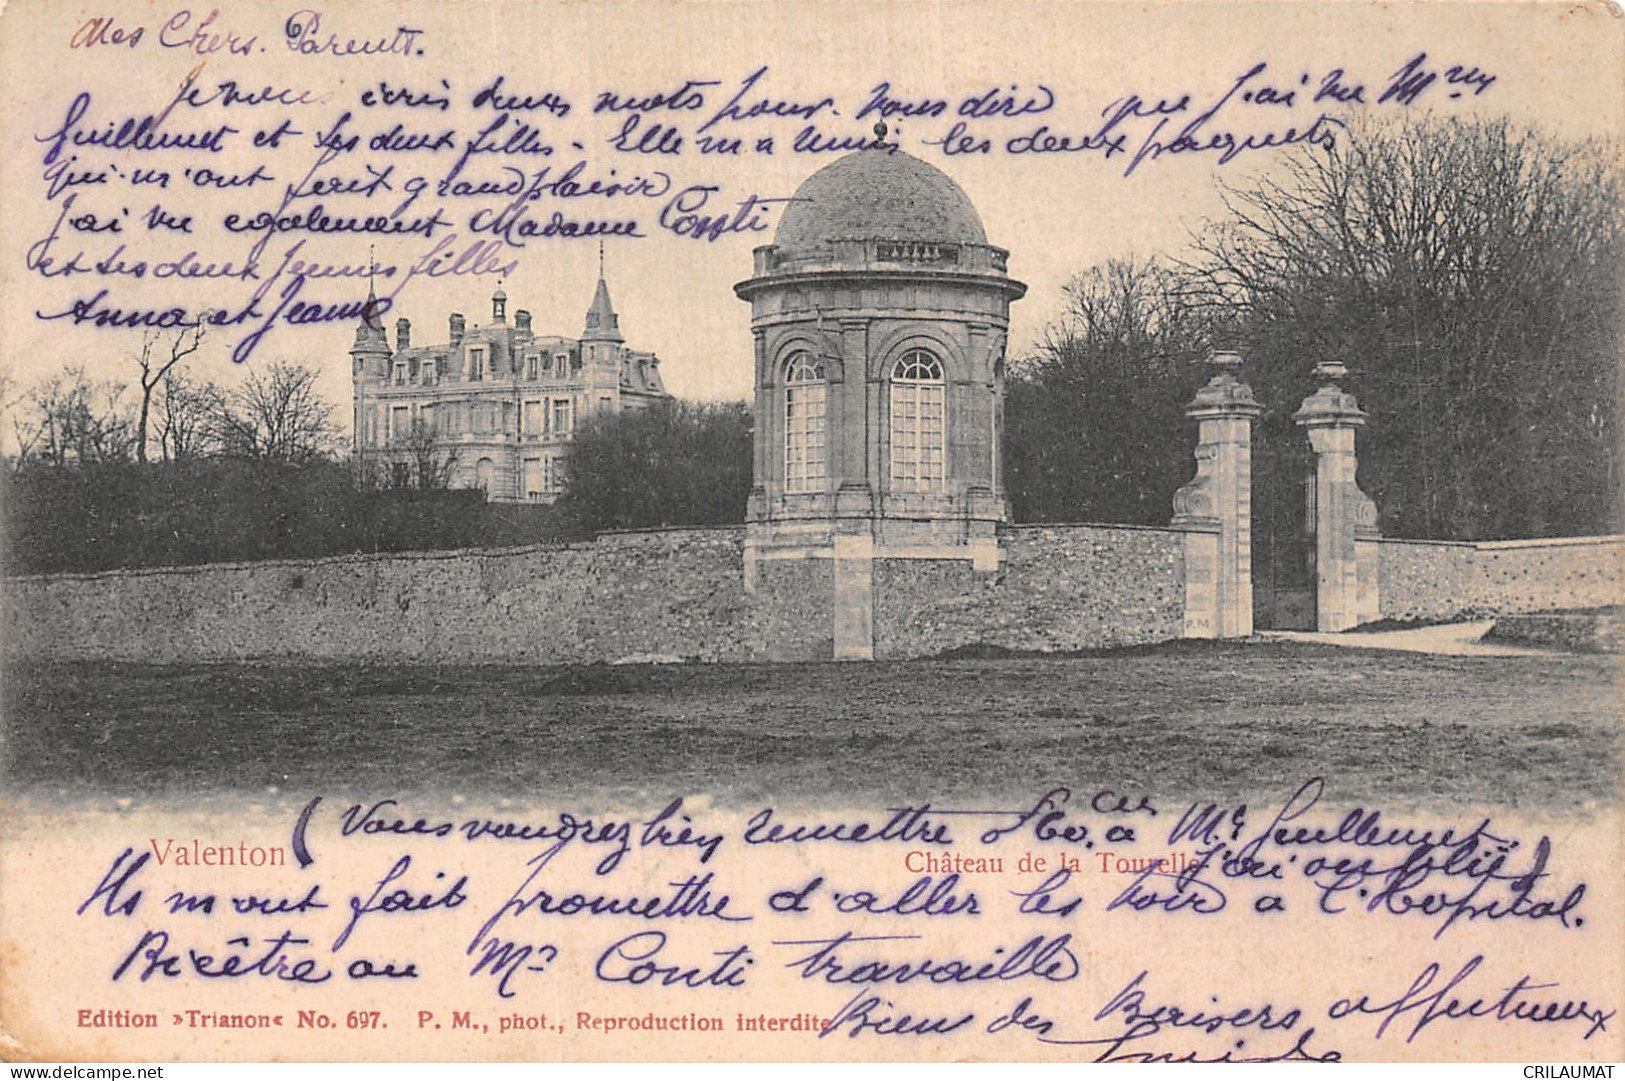 Mes Chers. Parents.
Je vous écris deux mots pour. vous dire que j'ai vu Mme
Guillemet et ses deux filles - Elle m'a remis les deux paquets
qui m'ont fait grand plaisir
J'ai vu egalement Madame Conti
et ses deux jeunes filles
Anna et Jeanne
(Vous voudrez bien remettre a Mr Guillemet
j'ai oublié)
Valenton
Château de la Tourelle
Ils m'ont fait promettre d'aller les voir a l'Hopital.
Bicêtre ou Mr Conti travaille
Bien des Baisers affectueux
Edition »Trianon« No. 697. P. M., phot., Reproduction interdite
P.M.
CRILAUMAT